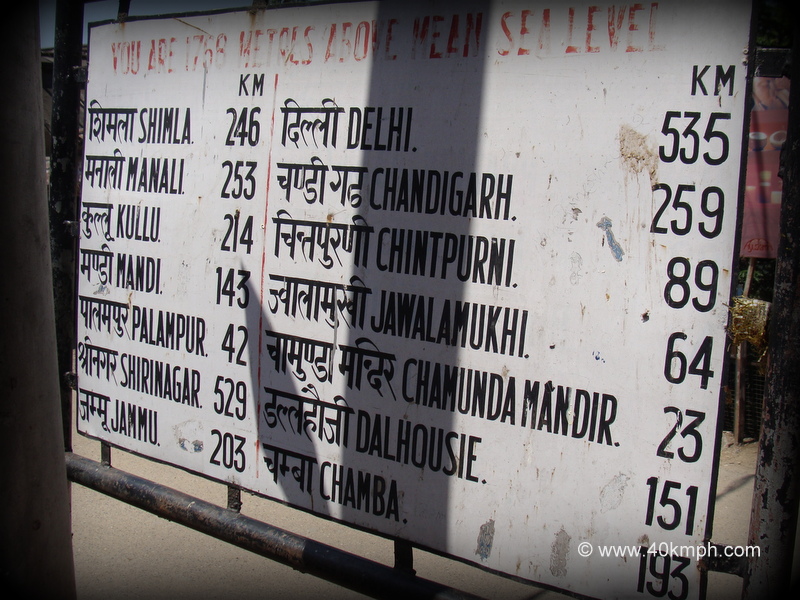 YOU ARE 1768 METRES ABOVE MEAN SEA LEVEL
KM
शिमला SHIMLA. 246
मनाली MANALI. 253
कुल्लू KULLU. 214
मण्डी MANDI. 143
पालमपुर PALAMPUR. 42
श्रीनगर SHIRINAGAR. 529
जम्मू JAMMU. 203
KM
दिल्ली DELHI. 535
चण्डीगढ CHANDIGARH. 259
चिन्तपुरणी CHINTPURNI. 89
ज्वालामुखी JAWALAMUKHI. 64
चामुण्डा मंदिर CHAMUNDA MANDIR. 23
डल्लहौजी DALHOUSIE. 151
चम्बा CHAMBA. 193
© www.40kmph.com